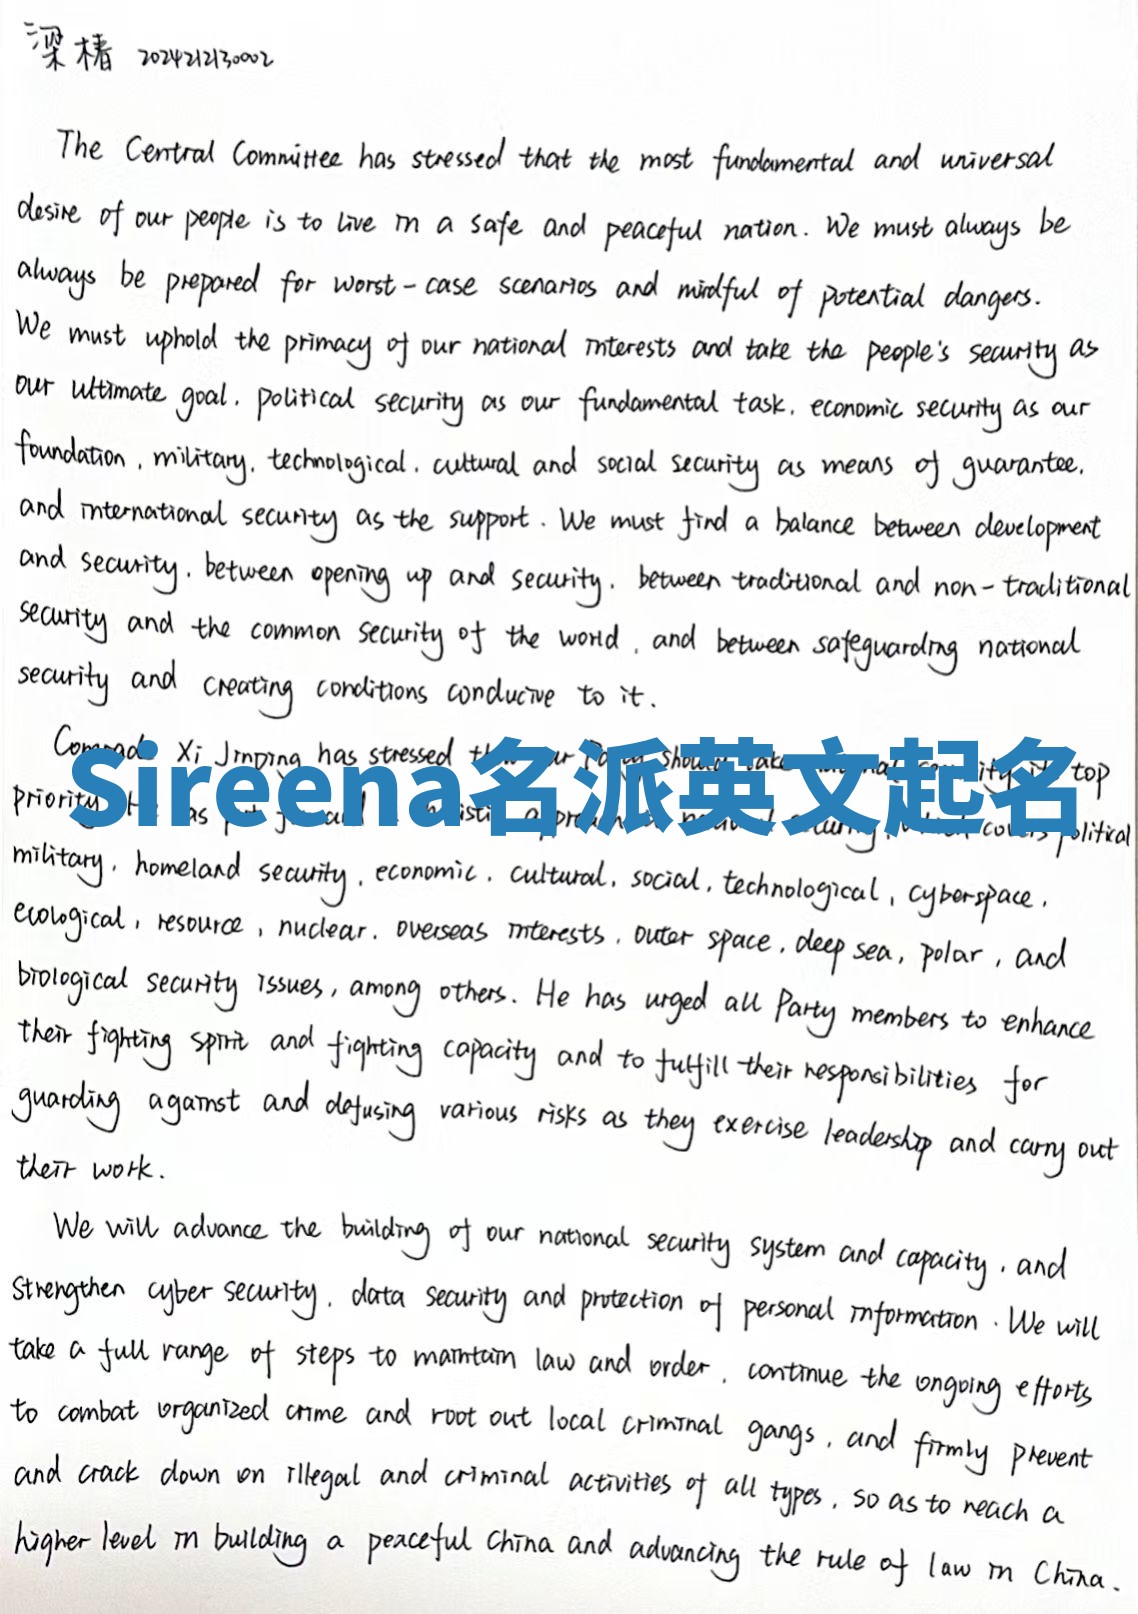 梁椿 2024212130002
The Central Committee has stressed that the most fundamental and universal
desire of our people is to live in a safe and peaceful nation. We must always be
always be prepared for worst-case scenarios and mindful of potential dangers.
We must uphold the primacy of our national interests and take the people's security as
our ultimate goal, political security as our fundamental task, economic security as our
foundation, military, technological, cultural and social security as means of guarantee,
and international security as the support. We must find a balance between development
and security, between opening up and security, between traditional and non-traditional
security and the common security of the world, and between safeguarding national
security and creating conditions conducive to it.
Comrade Xi Jinping has stressed top
Sireena名派英文起名
priority political
military, homeland security, economic, cultural, social, technological, cyberspace,
ecological, resource, nuclear, overseas interests, outer space, deep sea, polar, and
biological security issues, among others. He has urged all Party members to enhance
their fighting spirit and fighting capacity and to fulfill their responsibilities for
guarding against and defusing various risks as they exercise leadership and carry out
their work.
We will advance the building of our national security system and capacity, and
strengthen cyber security, data security and protection of personal information. We will
take a full range of steps to maintain law and order, continue the ongoing efforts
to combat organized crime and root out local criminal gangs, and firmly prevent
and crack down on illegal and criminal activities of all types, so as to reach a
higher level in building a peaceful China and advancing the rule of law in China.